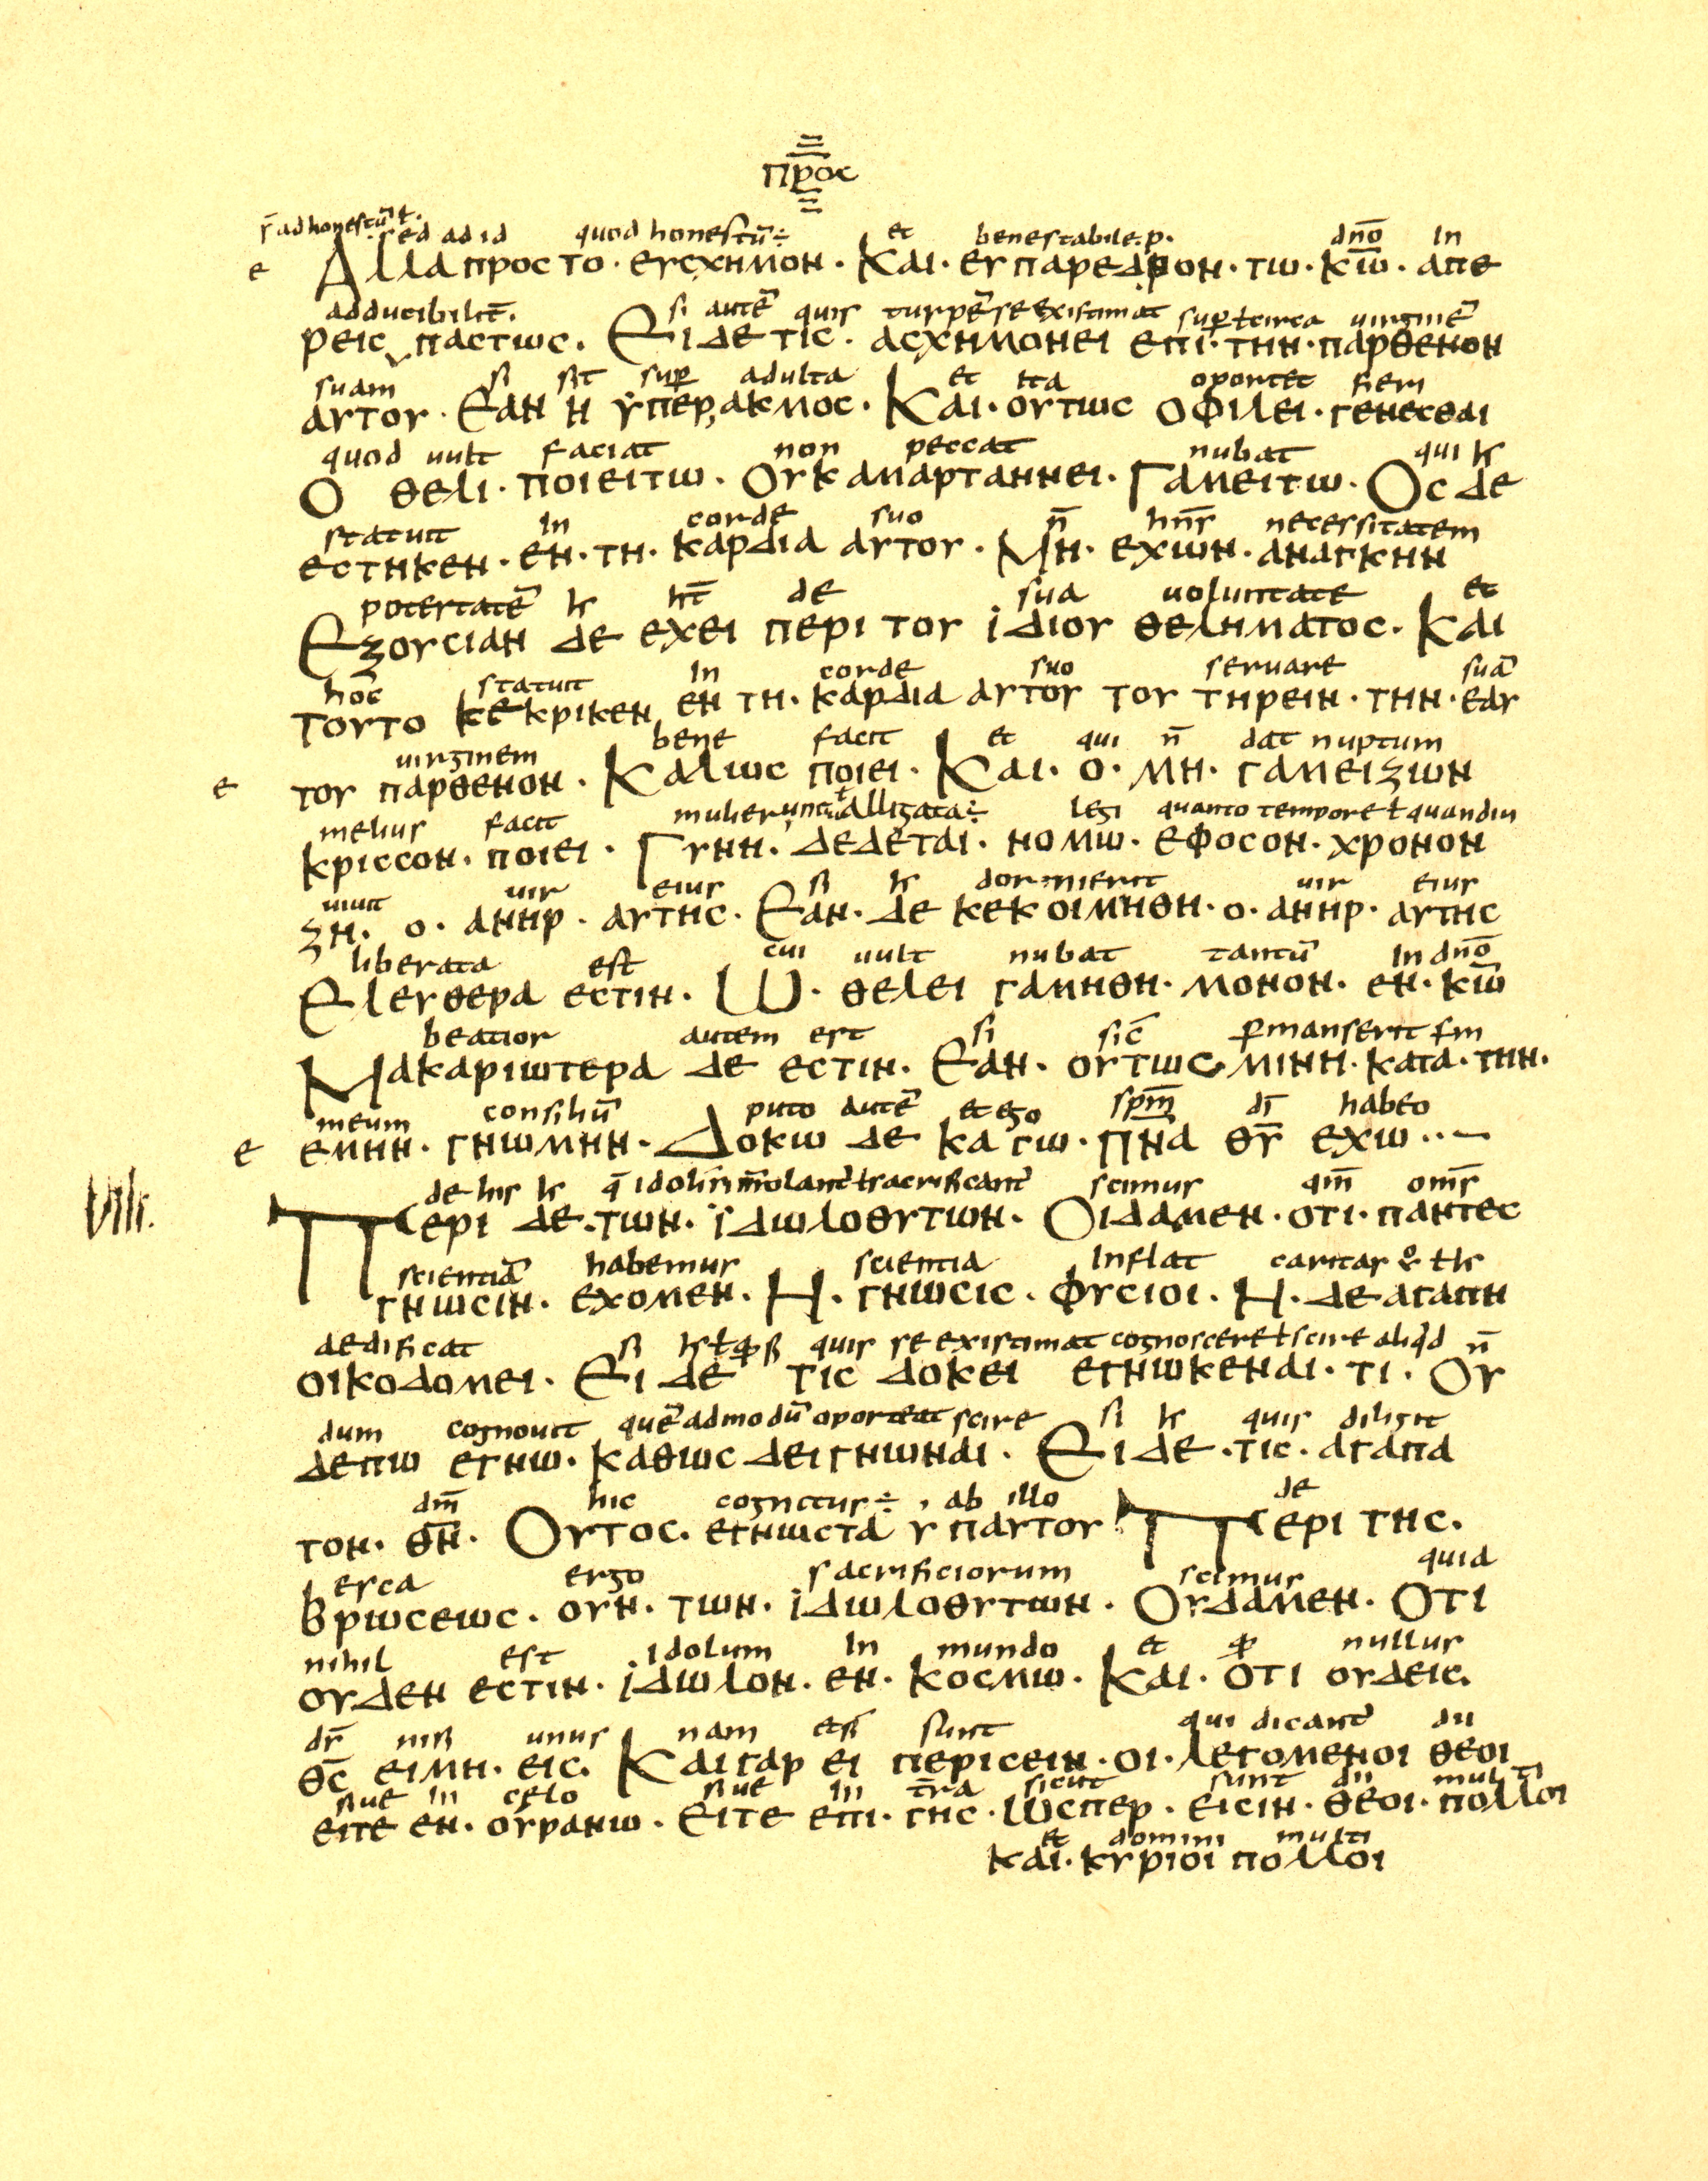 προς
r̄ ad honestū ł. sed ad id quod honestū÷ et benestabile.p. dn̄o in
e Αλλα προς το · ευσχημον · Και · ευπαρεδρον · τω · κ̅ω̅ · απε
adducibilit̄. si autē quis turpē se existimat sup ł circa uirginē
ρεις παστως. Ει δε τις · ασχημονει επι · την · παρθενον
suam si sit sup adulta et ita oportet fieri
αυτου · Εαν η ϋπερ,ακμος · Και · ουτως οφιλει · γενεσθαι
quod uult faciat non peccat nubat qui hʼ
Ο θελι · ποιειτω · Ουκ αμαρταννει · Γαμειτω · Ος δε
statuit in corde suo n̄ hn̄s necessitatem
εστηκεν · εν · τη · καρδια αυτου · Μη · εχων · αναγκην
potestatē hʼ ht̄ de sua uoluntate et
Εζουσιαν δε εχει περι του ϊδιου θελημ̣ατος · Και
hōc statuit in corde suo seruare suā
Τουτο κεκρικεν εν τη · καρδια αυτου του τηρειν · την · εαυ
uirginem bene facit et qui n̄ dat nuptum
e του παρθενον · Καλως ποιει · Και · ο · μη · γαμειζων
melius facit mulier uincta ł alligata÷ legi quanto tempore ł quandiu
κρισσον · ποιει · Γυνη · δεδεται · νομω · εφοσον · χρονον
uiuit uir eius si hʼ dormierit uir eius
ζη · ο · ανηρ · αυτης · Εαν · δε κεκοιμηθη · ο · ανηρ · αυτης
liberata est cui uult nubat tantū in dn̄o
Ελευθερα εστιν · Ω · θελει γαμηθη · μονον · εν · κ̅ω̅
beatior autem est si sic̄ pmanserit sm̄
Μακαριωτερα δε εστιν · Εαν · ουτως μινη · κατα · την ·
meum consiliū puto autē et ego spm̄ dī habeo
e εμην · γνωμην · Δοκω δε κα γω · π̅ν̅α̅ θ̅υ̅ εχω ··~
de his hʼ q̄ idolis īmolant ł sacrificant scimus qm̄ oms̄
VIII. Περι δε · των · ϊδωλοθυτων · Οιδαμεν · οτι · παντες
scientiā habemus scientia inflat caritas ł hʼ
γνωσιν · εχομεν · Η · γνωσις · φυσιοι · Η · δε αγαπη
aedificat si hʼ ł qđ si quis se existimat cognoscere ł scire aliq̄d n̄
οικοδομει · Ει δε τις δοκει εγνωκεναι · τι · Ου
dum cognouit quē ad modū oporteat scire si hʼ quis diligit
δεπω εγνω · καθως δει γνωναι · Ει δε · τις · αγαπα
dm̄ hic cognitus÷ , ab illo de
τον · θ̅ν̅ · Ουτος · εγνωστα υ παυτου Περι της ·
esca ergo sacrificiorum scimus quia
Βρωσεως · ουν · των · ϊδωλοθυτων · Ουδαμεν · Οτι
nihil est idolum in mundo et qđ nullus
ουδεν εστιν · ϊδωλον · εν · κοσμω · Και · οτι ουδεις ·
ds̄ nisi unus nam etsi sunt qui dicant dii
θ̅ς̅ ειμη · εις · Και γαρ ει περισειν · οι · λεγομενοι θεοι
siue in cęlo siue in tr̄a sicut sunt dii multi
ειτε εν · ουρανω · Ειτε επι · γης · Ωσπερ · εισιν · θεοι · πολλοι
et domini multi
και · κυριοι πολλοι